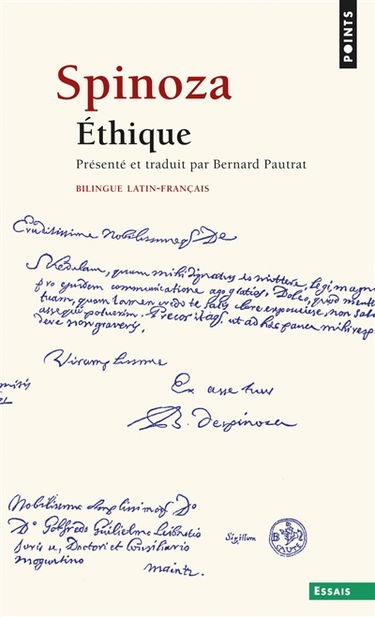 POINTS
Spinoza
Éthique
Présenté et traduit par Bernard Pautrat
BILINGUE LATIN-FRANÇAIS
Eruditissime Nobilissimeq De
Schedulam, quam mihi dignatus es mittere, legi, magna
pro ejusdem communicatione ago gratias. Doleo, quod mente
tuam, quam tamen credo te satis clare exposuisse, non
asse qui potuerim. Precor itaq ut ad haec pauca mihi resp
deve non graveris.
Vir amplissime
Ex asse tuus
B. despinoza
Nobilissimo Amplissimoq Do
Do Gotfredo Guilielmo Leibnitio
Juris u, Doctori et Consiliario
moguntino
maintz
Sigillum
B S
CAUTE
ESSAIS